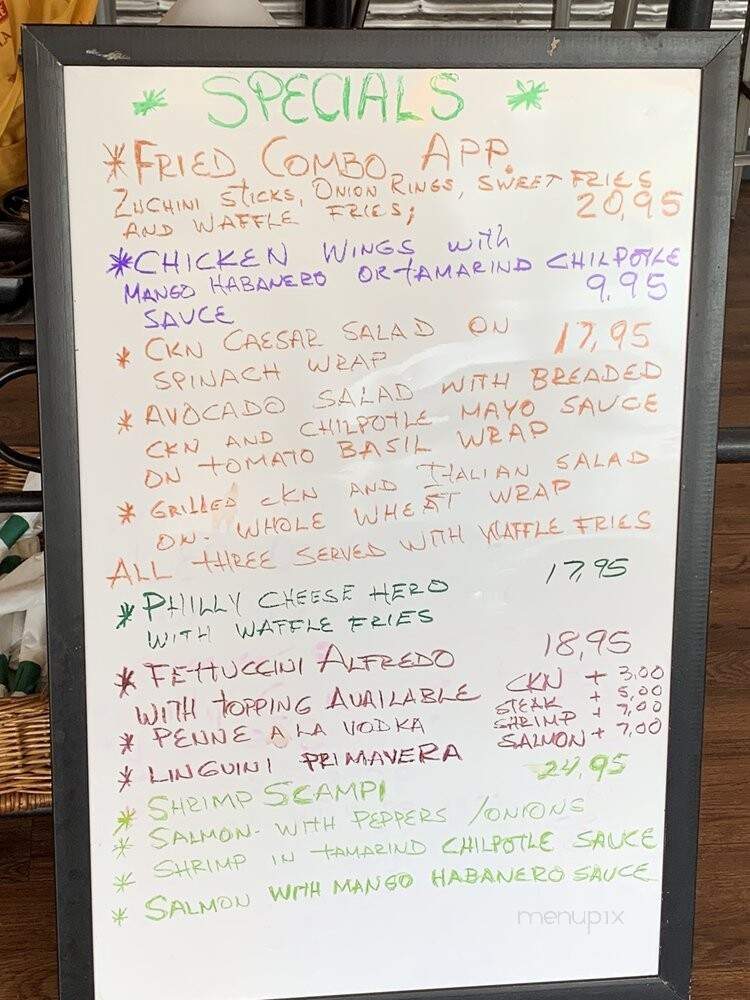 * SPECIALS *
* FRIED COMBO APP.
ZUCHINI STICKS, ONION RINGS, SWEET FRIES
AND WAFFLE FRIES; 20,95
* CHICKEN WINGS with
MANGO HABANERO OR TAMARIND CHILPOTLE
SAUCE 9,95
* CKN CAESAR SALAD ON 17,95
SPINACH WRAP
* AVOCADO SALAD WITH BREADED
CKN AND CHILPOTLE MAYO SAUCE
ON TOMATO BASIL WRAP
* GRILLED CKN AND ITHALIAN SALAD
ON. WHOLE WHEAT WRAP
ALL THREE SERVED WITH WAFFLE FRIES
* PHILLY CHEESE HERO 17,95
WITH WAFFLE FRIES
* FETTUCCINI ALFREDO 18,95
WITH TOPPING AVAILABLE CKN + 3,00
STEAK + 5,00
* PENNE A LA VODKA SHRIMP + 7,00
* LINGUINI PRIMAVERA SALMON + 7,00
* SHRIMP SCAMPI 24,95
* SALMON- WITH PEPPERS /ONIONS
* SHRIMP IN TAMARIND CHILPOTLE SAUCE
* SALMON WITH MANGO HABANERO SAUCE
menupix